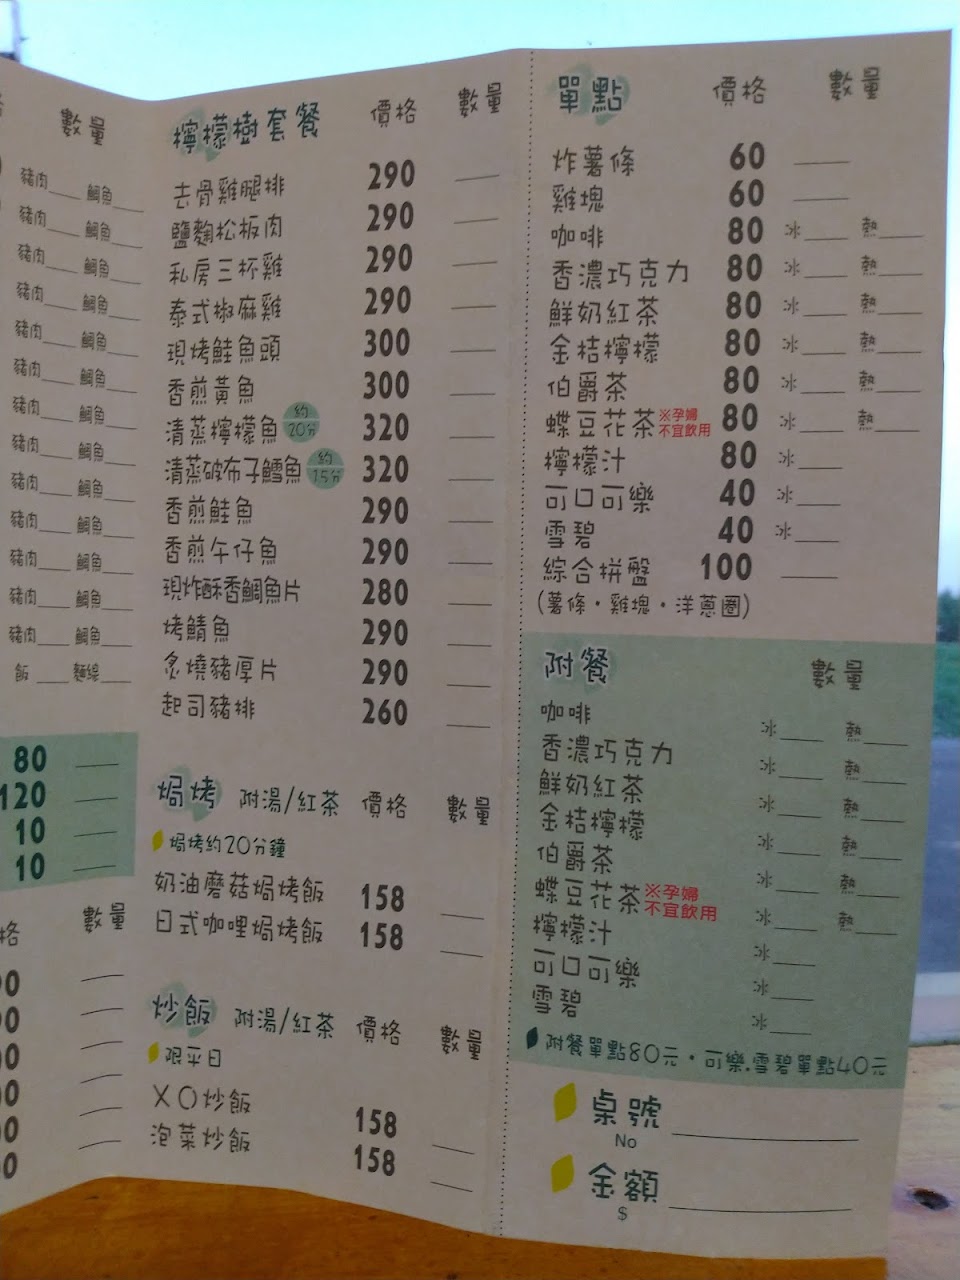 數量
豬肉 鯛魚
豬肉 鯛魚
豬肉 鯛魚
豬肉 鯛魚
豬肉 鯛魚
豬肉 鯛魚
豬肉 鯛魚
豬肉 鯛魚
豬肉 鯛魚
豬肉 鯛魚
豬肉 鯛魚
豬肉 鯛魚
豬肉 鯛魚
飯 麵線
80
120
10
10
格 數量
檸檬樹套餐 價格 數量
去骨雞腿排 290
鹽麴松板肉 290
私房三杯雞 290
泰式椒麻雞 290
現烤鮭魚頭 300
香煎黃魚 300
清蒸檸檬魚 約20分 320
清蒸破布子鱈魚 約15分 320
香煎鮭魚 290
香煎午仔魚 290
現炸酥香鯛魚片 280
烤鯖魚 290
炙燒豬厚片 290
起司豬排 260
焗烤 附湯/紅茶 價格 數量
焗烤約20分鐘
奶油磨菇焗烤飯 158
日式咖哩焗烤飯 158
炒飯 附湯/紅茶 價格 數量
限平日
XO炒飯 158
泡菜炒飯 158
單點 價格 數量
炸薯條 60
雞塊 60
咖啡 80 冰 熱
香濃巧克力 80 冰 熱
鮮奶紅茶 80 冰 熱
金桔檸檬 80 冰 熱
伯爵茶 80 冰 熱
蝶豆花茶 ※孕婦不宜飲用 80 冰 熱
檸檬汁 80 冰
可口可樂 40 冰
雪碧 40 冰
綜合拼盤 100
(薯條·雞塊·洋蔥圈)
附餐 數量
咖啡 冰 熱
香濃巧克力 冰 熱
鮮奶紅茶 冰 熱
金桔檸檬 冰 熱
伯爵茶 冰 熱
蝶豆花茶 ※孕婦不宜飲用 冰 熱
檸檬汁 冰
可口可樂 冰
雪碧 冰
附餐單點80元·可樂.雪碧單點40元
桌號
No
金額
$